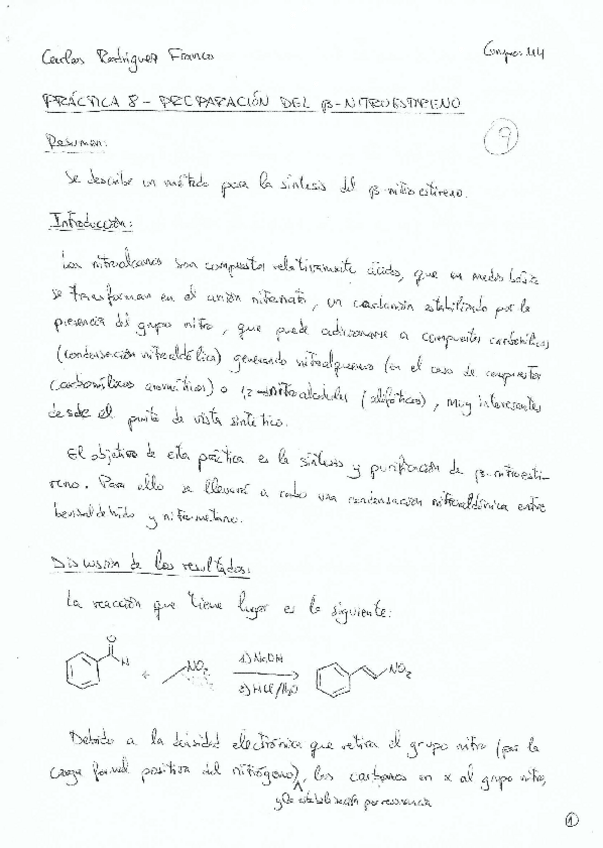 Carlos Rodríguez Franco
Grupo 114
PRÁCTICA 8 - PREPARACIÓN DEL β-NITROESTIRENO
9
Resumen:
Se describe un método para la síntesis del β-nitroestireno.
Introducción:
Los nitroalcanos son compuestos relativamente ácidos, que en medio básico
se transforman en el anión nitronato, un carbanión estabilizado por la
presencia del grupo nitro, que puede adicionarse a compuestos carbonílicos
(condensación nitroaldólica) generando nitroalquenos (en el caso de compuestos
carbonílicos aromáticos) o 1,2-nitroalcoholes (alifáticos), muy interesantes
desde el punto de vista sintético.
El objetivo de esta práctica es la síntesis y purificación de β-nitroesti-
reno. Para ello se llevará a cabo una condensación nitroaldólica entre
benzaldehído y nitrometano.
Discusión de los resultados:
La reacción que tiene lugar es la siguiente:
O
H
+
NO₂
1) NaOH
2) HCl/H₂O
NO₂
Debido a la densidad electrónica que retira el grupo nitro (por la
carga formal positiva del nitrógeno), los carbonos en α al grupo nitro,
y la estabilización por resonancia
1